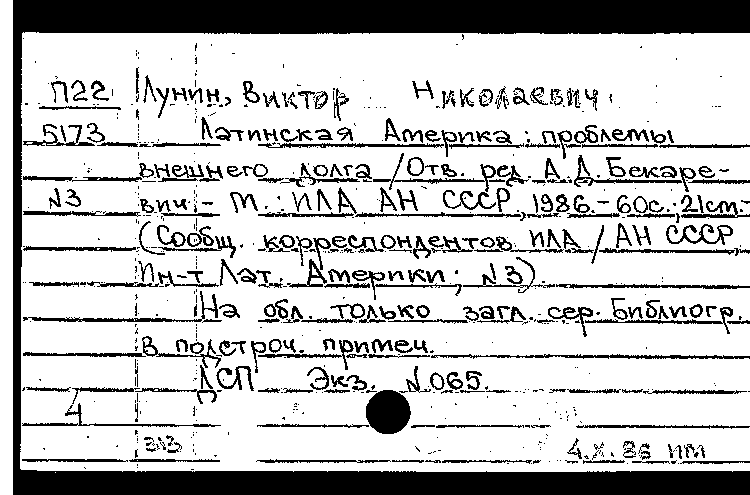 П22 Лунин, Виктор Николаевич.
5173 Латинская Америка: проблемы
внешнего долга / Отв. ред. А.Д. Бекаре-
N3 вич. - М.: ИЛА АН СССР, 1986. - 60с.; 21см. -
(Сообщ. корреспондентов ИЛА / АН СССР,
Ин-т Лат. Америки; N3).
На обл. только загл. сер. Библиогр.
в подстроч. примеч.
ДСП Экз. N065.
4
313 4.X.86 ИМ